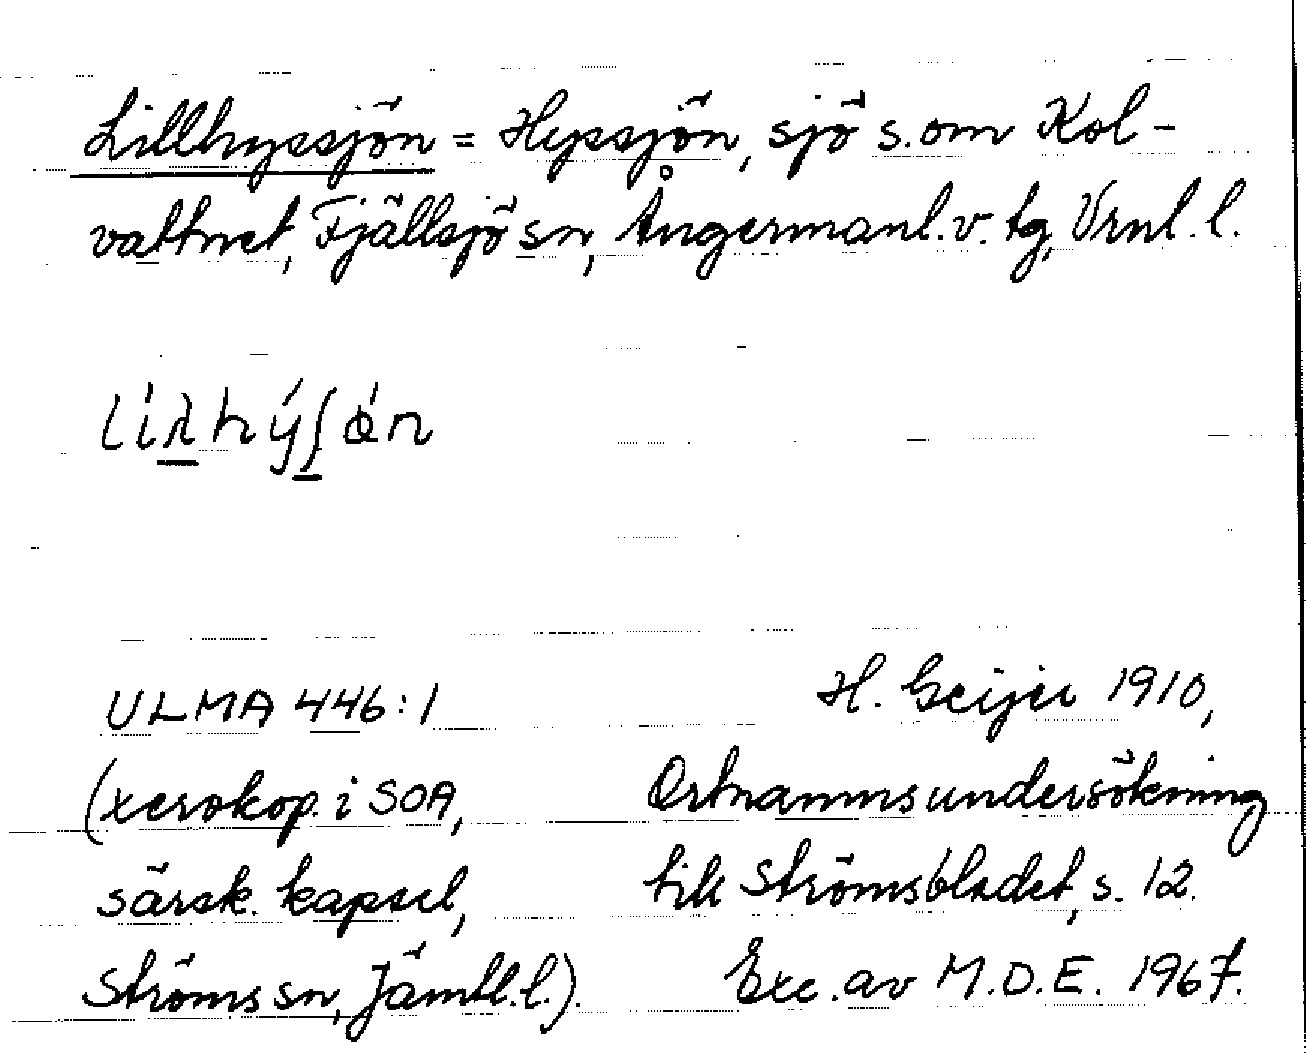 Lillhyssjön = Hyssjön, sjö s. om Kol-
vattnet, Fjällsjö sn, Ångermanl. v. tg, Vrnl. l.
ULMA 446:1
(xerokop. i SOA,
särsk. kapsel,
Ströms sn, Jämtl. l.).
H. Geijer 1910,
Ortnamnsundersökning
till Strömsbladet, s. 12.
Exc. av M.D.E. 1967.